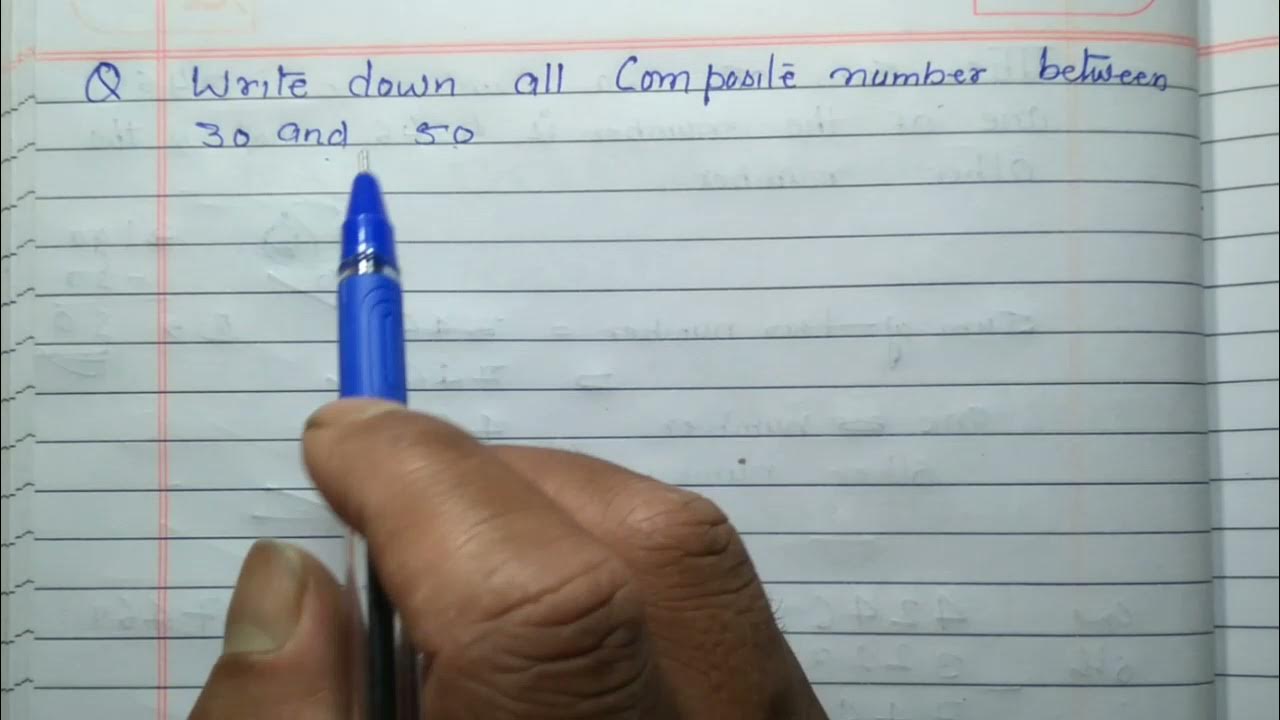 Q Write down all Composite number between
30 and 50